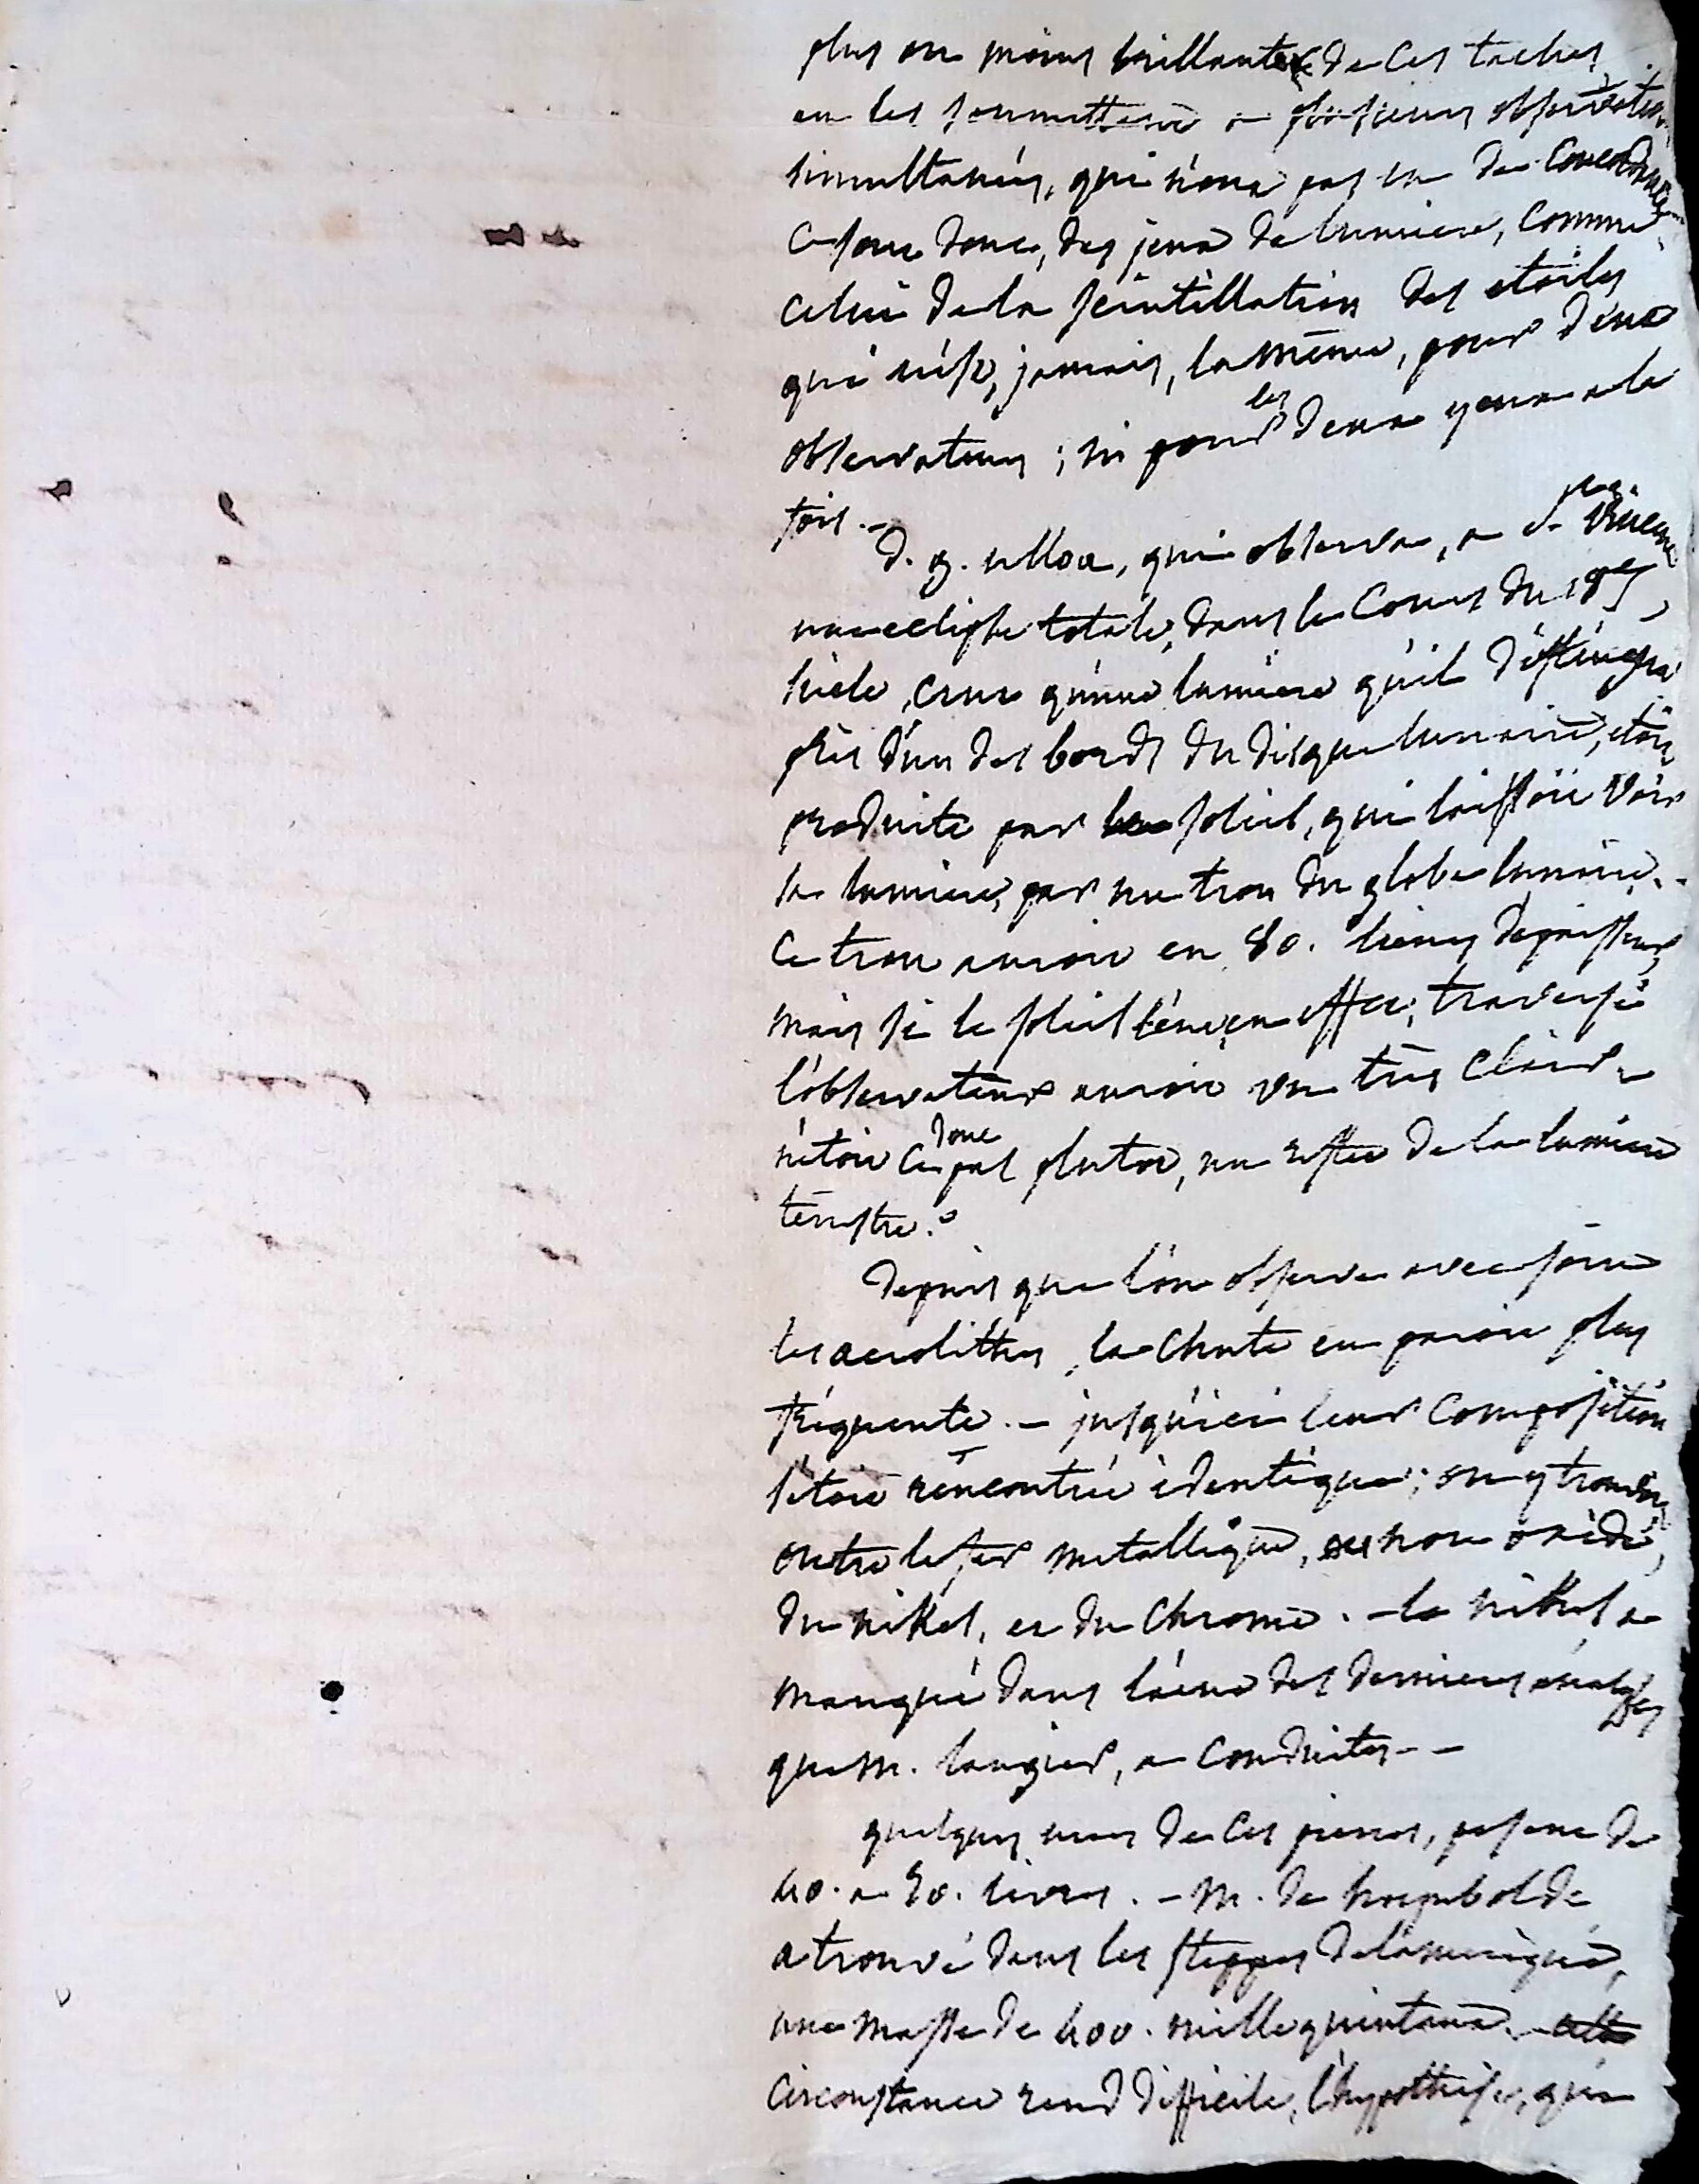 plus ou moins brillantes de ces taches
en les soumettant a plusieurs observations
simultanées, qui n'ont pas eu de concordance
ce sont donc, des jeux de lumiere, comme
celui de la scintillation des etoiles
qui n'est, jamais, la même, pour deux
observateurs ; ni pour les deux yeux a la
fois. –
D. g. ulloa, qui observa, a St Vincent
une eclipse totale, dans le cours du 18e
siècle, crut qu'une lumiere qu'il distingua
près d'un des bords du disque lunaire, etoit
produite par le soleil, qui laissoit voir
sa lumiere, par un trou du globe lunaire. -
Ce trou auroit eu 80. lieues d'epaisseur,
mais si le soleil l'eut en effet, traversé
l'observateur auroit vu très clair -
n'etoit ce donc pas plutot, un reste de la lumiere
terrestre. ?
Depuis que l'on observe avec soin
les aerolithes, la chute en paroit plus
fréquente. – jusqu'ici leur composition
s'etoit rencontrée identique ; on y trouvoit
outre le fer metallique, et non oxidé,
du nikel, et du chrome. – le nikel a
manqué dans l'une des dernieres analyses
que m. laugier, a conduites - -
quelques unes de ces pierres, pesent de
40. a 50. livres. – m. de humbolde
a trouvé dans les steppes de l'amerique,
une masse de 400. mille quintaux. cette
circonstance rend difficile, l'hypothese, qui